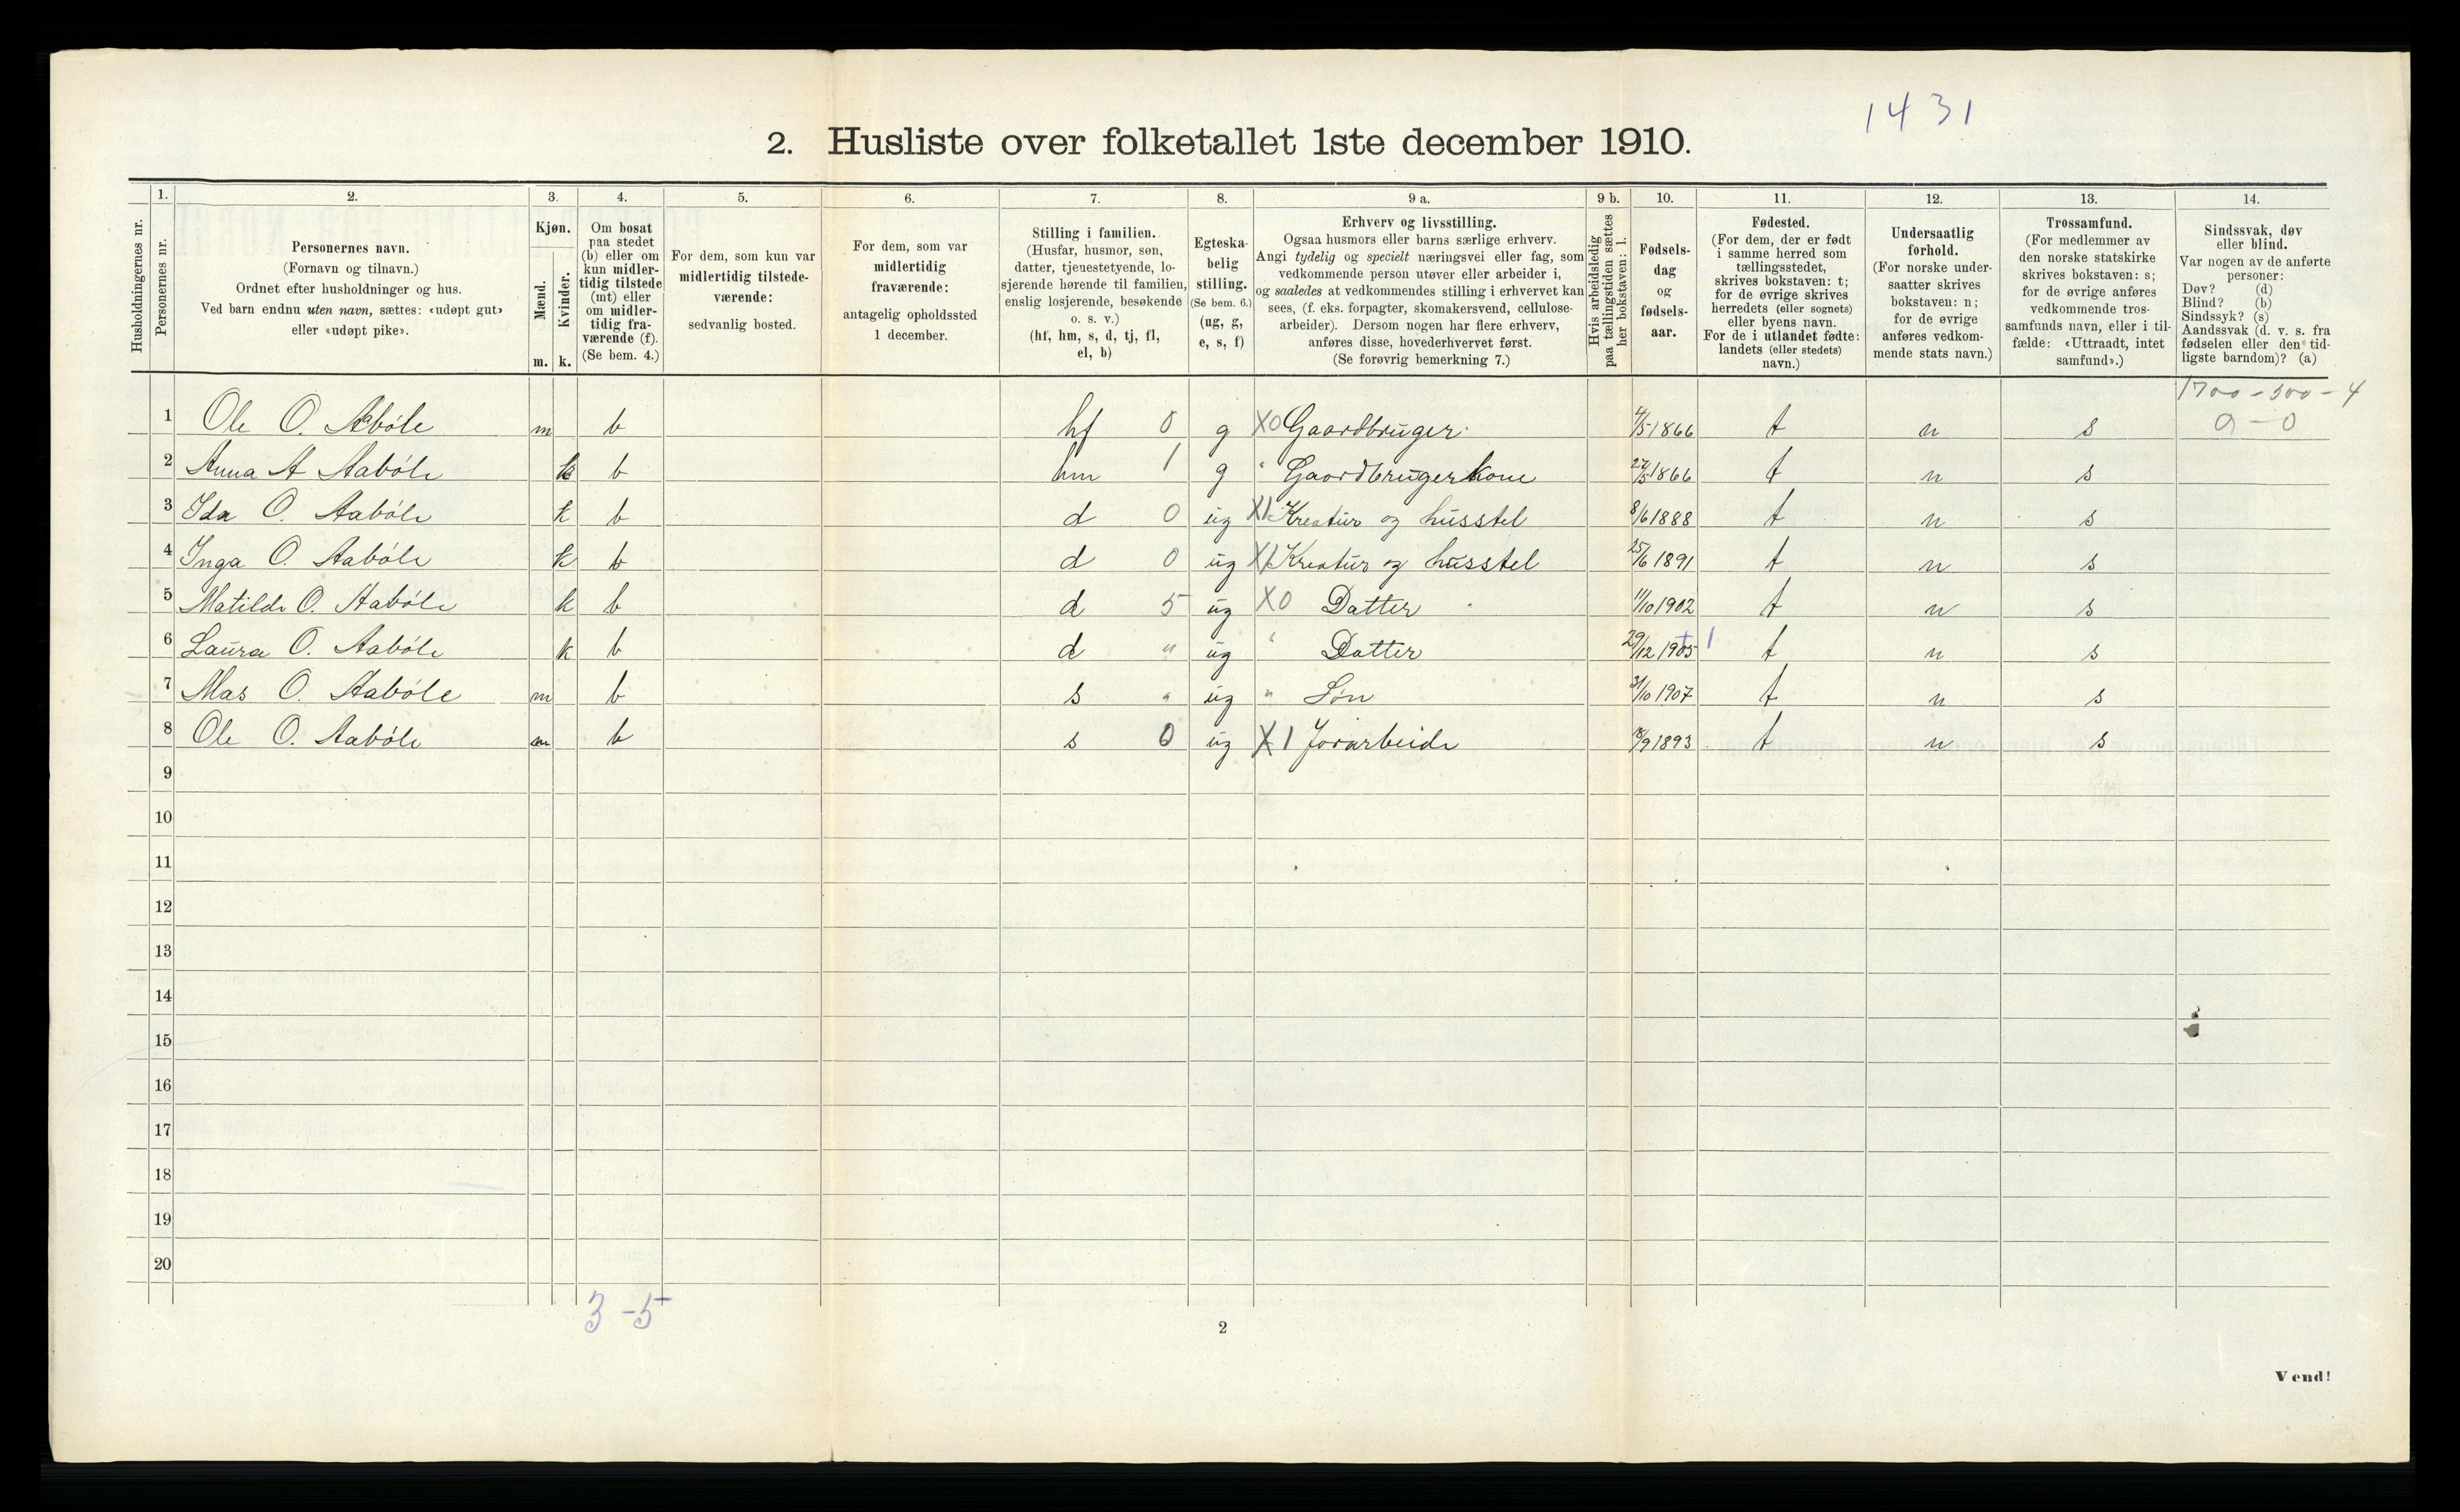 1431
2. Husliste over folketallet 1ste december 1910.
Husholdningernes nr.
1. Personernes nr.
2. Personernes navn. (Fornavn og tilnavn.) Ordnet efter husholdninger og hus. Ved barn endnu uten navn, sættes: «udøpt gut» eller «udøpt pike».
3. Kjøn. Mænd. m. Kvinder. k.
4. Om bosat paa stedet (b) eller om kun midlertidig tilstede (mt) eller om midlertidig fraværende (f). (Se bem. 4.)
5. For dem, som kun var midlertidig tilstedeværende: sedvanlig bosted.
6. For dem, som var midlertidig fraværende: antagelig opholdssted 1 december.
7. Stilling i familien. (Husfar, husmor, søn, datter, tjenestetyende, losjerende hørende til familien, enslig losjerende, besøkende o. s. v.) (hf, hm, s, d, tj, fl, el, b)
8. Egteskabelig stilling. (Se bem. 6.) (ug, g, e, s, f)
9 a. Erhverv og livsstilling. Ogsaa husmors eller barns særlige erhverv. Angi tydelig og specielt næringsvei eller fag, som vedkommende person utøver eller arbeider i, og saaledes at vedkommendes stilling i erhvervet kan sees, (f. eks. forpagter, skomakersvend, cellulosearbeider). Dersom nogen har flere erhverv, anføres disse, hovederhvervet først. (Se forøvrig bemerkning 7.)
9 b. Hvis arbeidsledig paa tællingstiden sættes her bokstaven: l.
10. Fødselsdag og fødselsaar.
11. Fødested. (For dem, der er født i samme herred som tællingsstedet, skrives bokstaven: t; for de øvrige skrives herredets (eller sognets) eller byens navn. For de i utlandet fødte: landets (eller stedets) navn.)
12. Undersaatlig forhold. (For norske undersaatter skrives bokstaven: n; for de øvrige anføres vedkommende stats navn.)
13. Trossamfund. (For medlemmer av den norske statskirke skrives bokstaven: s; for de øvrige anføres vedkommende trossamfunds navn, eller i tilfælde: «Uttraadt, intet samfund».)
14. Sindssvak, døv eller blind. Var nogen av de anførte personer: Døv? (d) Blind? (b) Sindssyk? (s) Aandssvak (d. v. s. fra fødselen eller den tidligste barndom)? (a)
1700 - 500 - 4
1 Ole O. Aabøle m b hf 0 g X0 Gaardbruger 4/5 1866 t n s a - 0
2 Anna A Aabøle k b hm 1 g " Gaardbrugerkone 27/5 1866 t n s
3 Ida O. Aabøle k b d 0 ug X1 Kreatur og husstel 8/6 1888 t n s
4 Inga O. Aabøle k b d 0 ug X1 Kreatur og husstel 25/6 1891 t n s
5 Matilde O. Aabøle k b d 5 ug X0 Datter 11/10 1902 t n s
6 Laura O. Aabøle k b d " ug " Datter 29/12 1905 1 t n s
7 Mas O. Aabøle m b s " ug " Søn 31/10 1907 t n s
8 Ole O. Aabøle m b s 0 ug X1 Jorarbeide /9 1893 t n s
9
10
11
12
13
14
15
16
17
18
19
20
3 - 5
2
Vend!